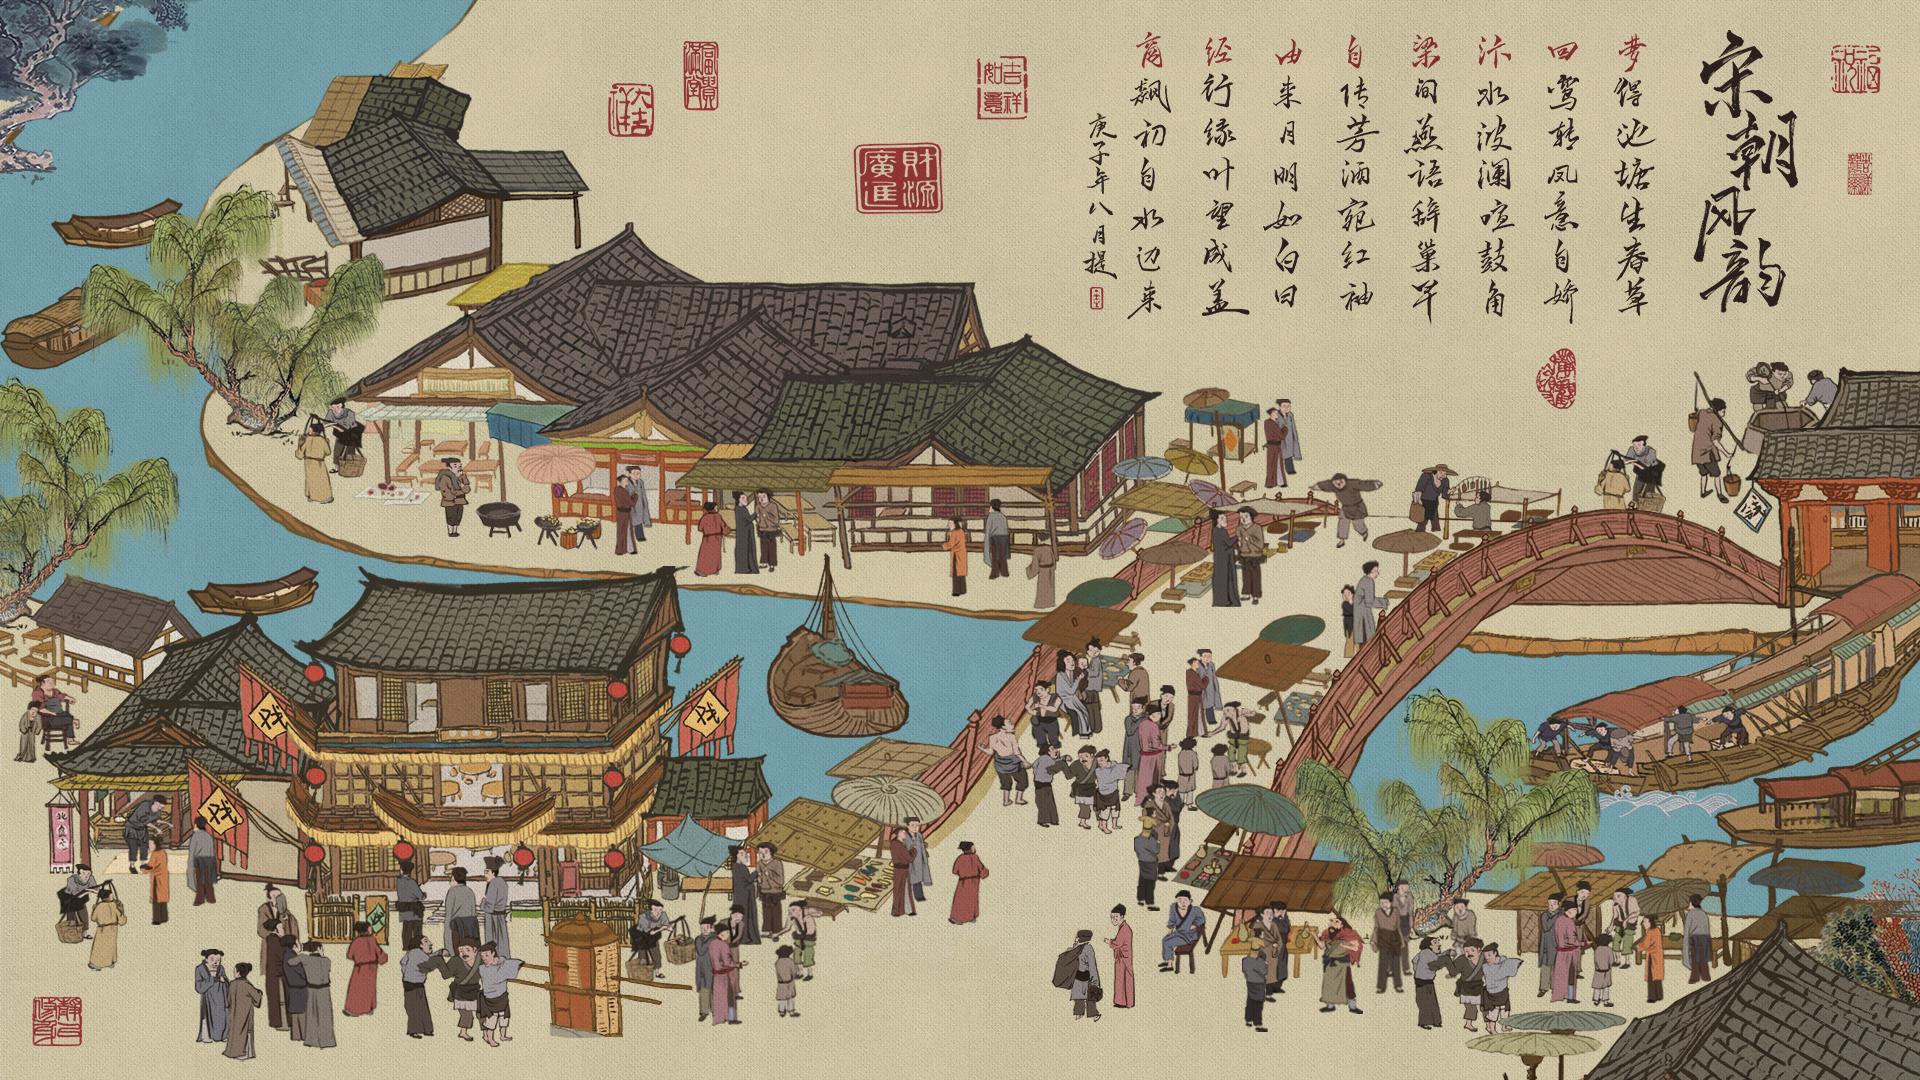 宋朝风韵
梦得池塘生春草
回鸾转凤意自娇
汴水波澜喧鼓角
梁间燕语辞巢早
自传芳酒宛红袖
由来月明如白日
经行缘叶望成盖
商飙初自水边来
庚子年八月提
吉祥如意
財源廣進
富貴滿堂